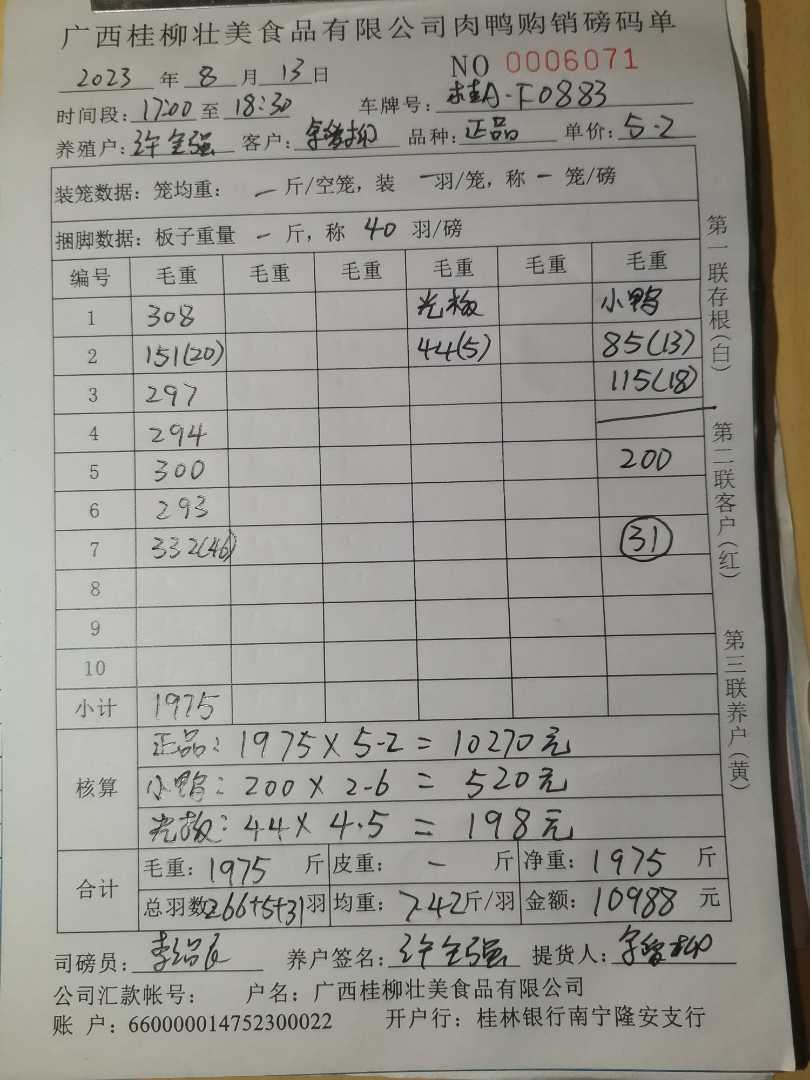 广西桂柳壮美食品有限公司肉鸭购销磅码单
2023 年 8 月 13 日 NO 0006071
时间段: 17:00 至 18:30 车牌号: 桂A-F0883
养殖户: 许全强 客户: 品种: 正品 单价: 5-2
装笼数据: 笼均重: 一 斤/空笼, 装 一 羽/笼, 称 一 笼/磅
捆脚数据: 板子重量 一 斤, 称 40 羽/磅
编号 毛重 毛重 毛重 毛重 毛重 毛重
1 308 光板 小鸭
2 151(20) 44(5) 85(13)
3 297 115(18)
4 294
5 300 200
6 293
7 332(46) 31
8
9
10
小计 1975
核算
正品: 1975 X 5-2 = 10270元
小鸭: 200 X 2-6 = 520元
光板: 44 X 4.5 = 198元
合计
毛重: 1975 斤 皮重: - 斤 净重: 1975 斤
总羽数266+5+31羽 均重: 7.42斤/羽 金额: 10988 元
司磅员: 养户签名: 许全强 提货人:
公司汇款帐号: 户名: 广西桂柳壮美食品有限公司
账 户: 660000014752300022 开户行: 桂林银行南宁隆安支行
第一联存根(白)
第二联客户(红)
第三联养户(黄)